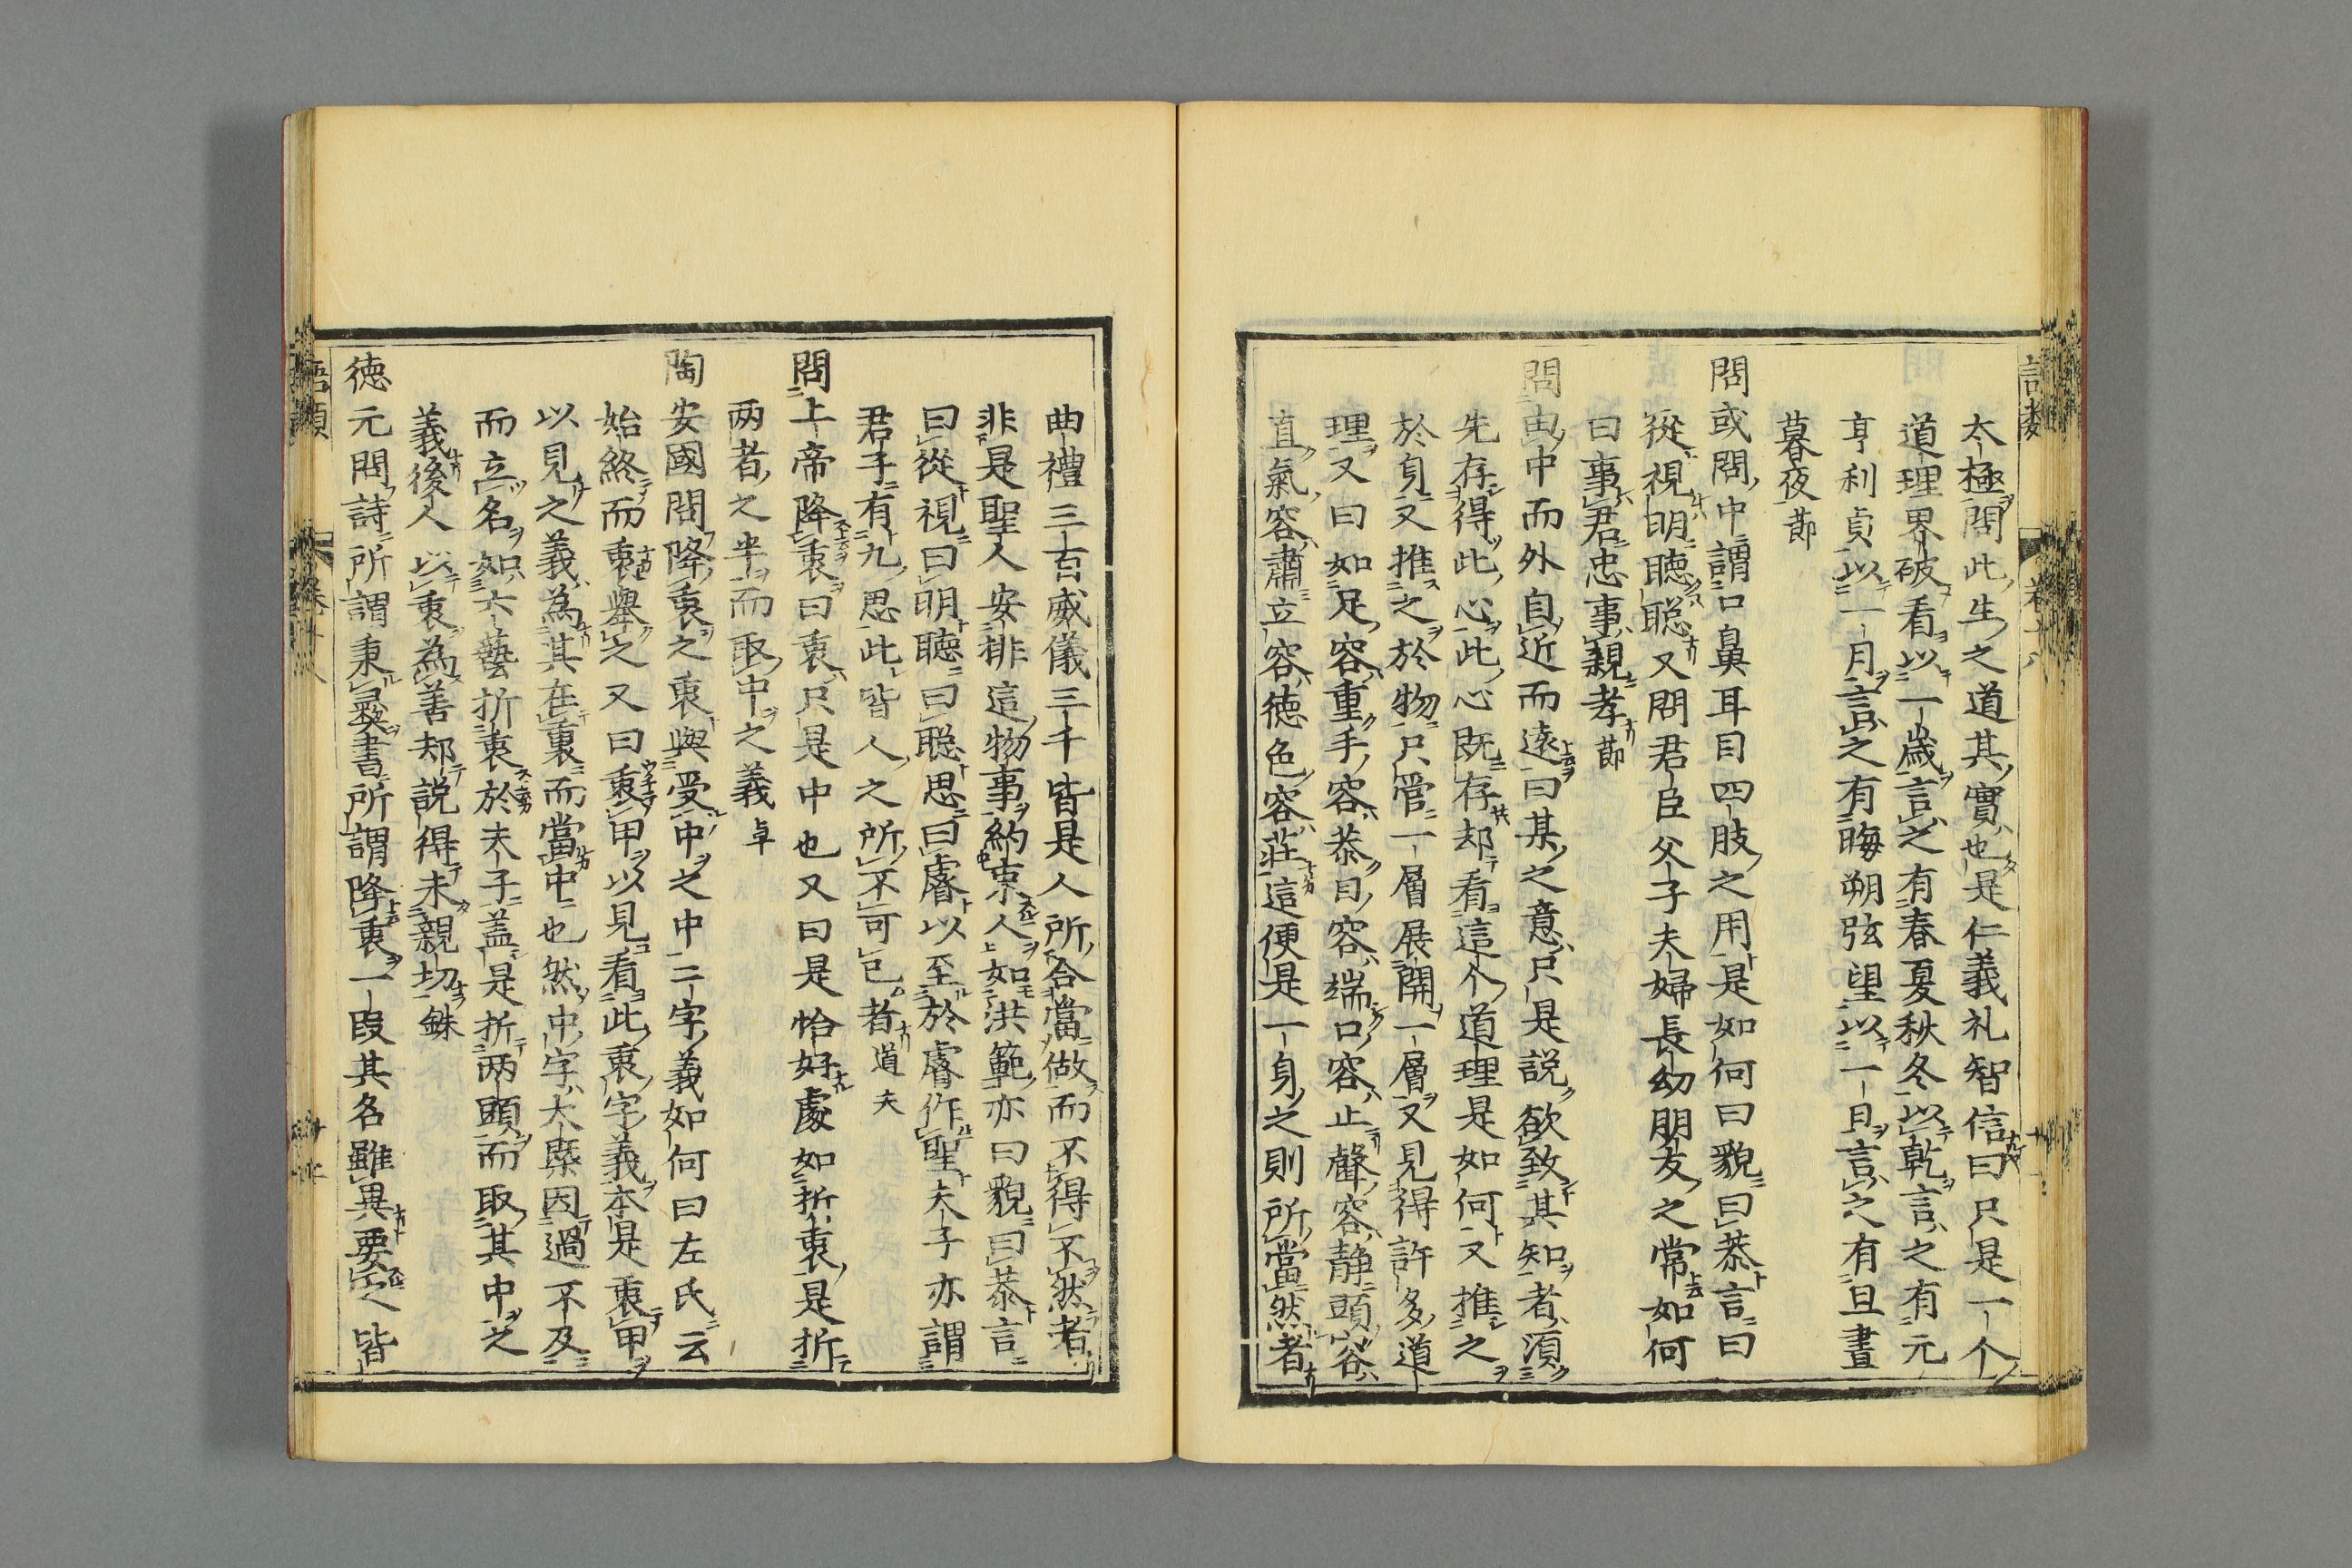 太極問此生之道其實也是仁義礼智信曰只是一个
道理界破看以一歲言之有春夏秋冬以乾言之有元
亨利貞以一月言之有晦朔弦望以一日言之有旦晝
暮夜節
問或問中謂口鼻耳目四肢之用是如何曰貌曰恭言曰
從視明聽聰又問君臣父子夫婦長幼朋友之常如何
曰事君忠事親孝節
問由中而外自近而遠曰某之意只是說欲致其知者須
先存得此心此心既存却看這个道理是如何又推之
於身又推之於物只管一層展開一層又見得許多道
理又曰如足容重手容恭目容端口容止聲容静頭容
直氣容肅立容徳色容莊這便是一身之則所當然者
曲禮三百威儀三千皆是人所合當做而不得不然者
非是聖人安排這物事約束人如洪範亦曰貌曰恭言
曰從視曰明聽曰聰思曰睿以至於睿作聖夫子亦謂
君子有九思此皆人之所不可已者道夫
問上帝降衷曰衷只是中也又曰是恰好處如折衷是折
两者之半而取中之義卓
陶安國問降衷之衷與受中之中二字義如何曰左氏云
始終而衷舉之又曰衷甲以見看此衷字義本是衷甲
以見之義為其在裏而當中也然中字大槩因過不及
而立名如六藝折衷於夫子蓋是折两頭而取其中之
義後人以衷為善却説得未親切銖
徳元問詩所謂秉彝書所謂降衷一段其名雖異要之皆
語類
卷十八